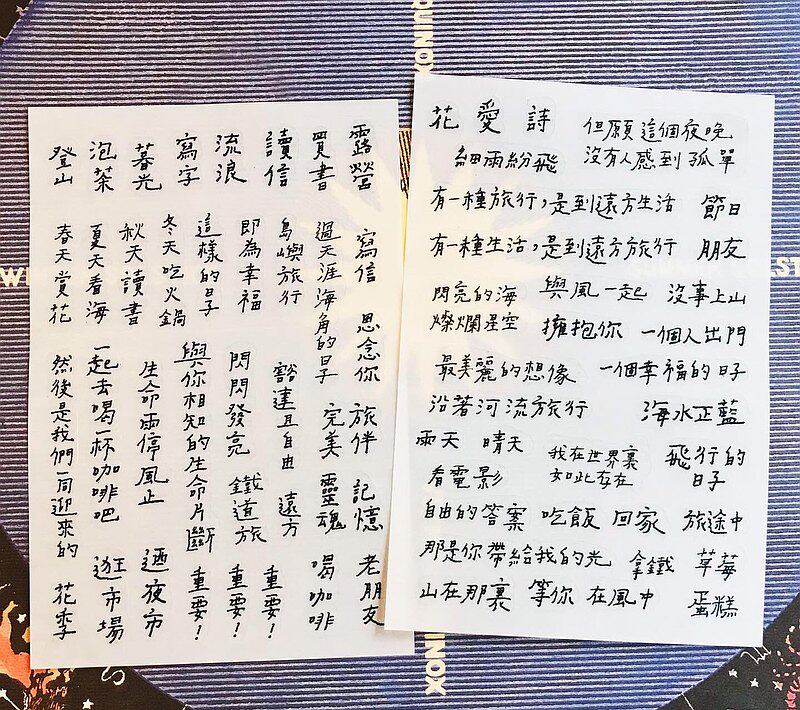 EQUINOX
露營
買書
讀信
流浪
寫字
暮光
泡茶
登山
寫信
過天涯海角的日子
島嶼旅行
即為幸福
這樣的日子
冬天吃火鍋
秋天讀書
夏天看海
春天賞花
思念你
旅伴
完美
豁達且自由
閃閃發亮
與你相知的生命片斷
生命雨停風止
一起去喝一杯咖啡吧
然後是我們一同迎來的
記憶
靈魂
遠方
鐵道旅
老朋友
喝咖啡
重要!
重要!
重要!
迺夜市
逛市場
花季
花 愛 詩
但願這個夜晚
沒有人感到孤單
細雨紛飛
有一種旅行,是到遠方生活
節日
有一種生活,是到遠方旅行
朋友
閃亮的海
燦爛星空
與風一起
擁抱你
沒事上山
一個人出門
最美麗的想像
一個幸福的日子
沿著河流旅行
海水正藍
雨天
晴天
我在世界裏
如此存在
飛行的
日子
看電影
自由的答案
吃飯
回家
旅途中
那是你帶給我的光
拿鐵
草莓
蛋糕
山在那裏
等你
在風中
INOX